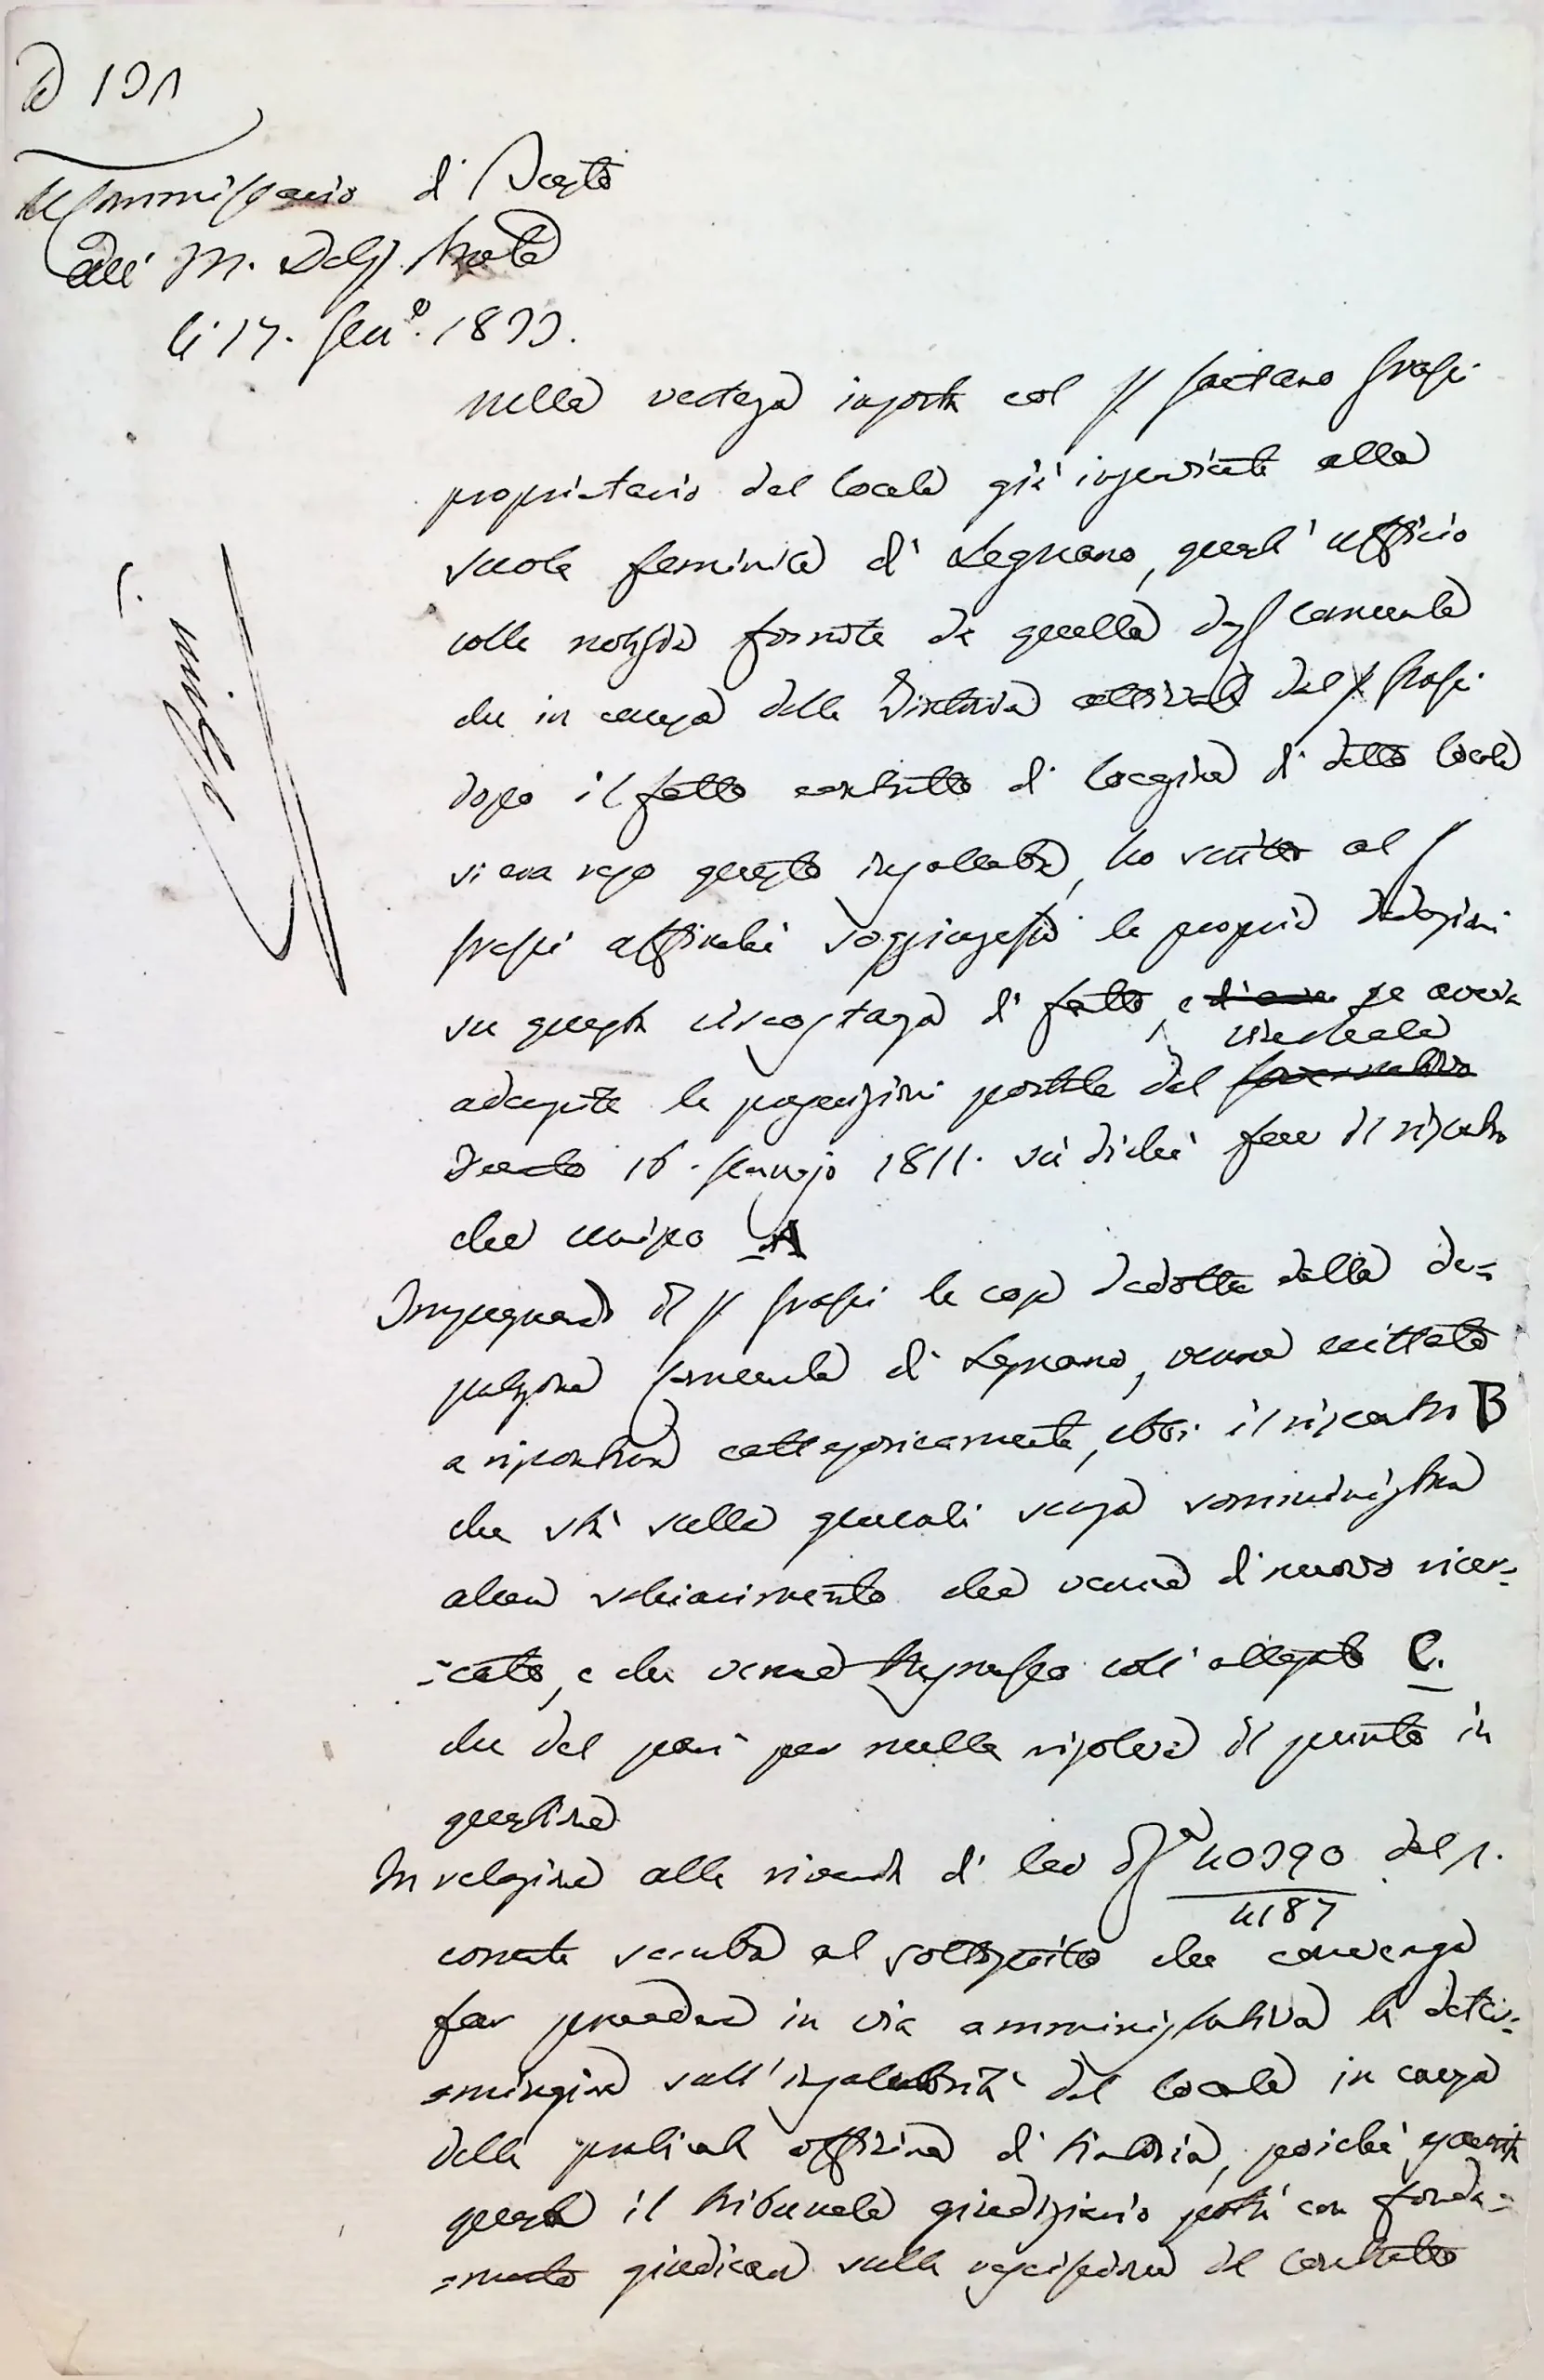 N 191
Il Commissario di Scerto
All' I. R. Deleg. Prov.le
li 17. Gen.o 1833.
Nella vertenza insorta col S.r Gaetano Grassi
proprietario del locale già inserviente alla
scuola feminile di Legnano, quest'ufficio
colle notizie fornite da quella Dep. Comunale
che in causa della Tintoria attivata dal S.r Grassi
dopo il fatto contratto di locazione di detto locale
si era reso questo insalubre, ho scritto al S.r
Grassi affinchè soggiungesse le proprie deduzioni
su questa circostanza di fatto, e se aveva
adempite le prescrizioni portate dal vicereale
Decreto 16. Gennajo 1811. su di che fece il riscontro
che unisco A
Impugnando il S.r Grassi le cose dedotte dalla de=
putazione Comunale di Legnano, venne eccittato
a riscontrare cattegoricamente, ebbi il riscontro B
che stà sulle generali senza somministrare
alcun schiarimento che venne di nuovo ricer=
=cato, e che venne trasmesso coll'allegato C.
che del pari per nulla risolve il punto in
questione
In relazione alla riverita di lei Ord.a 40390 del 1.
4187
corrente sembra al sottoscritto che convenga
far precedere in via amministrativa la deter=
=minazione sull'insalubrità del locale in causa
della praticata officina di tintoria, poichè
questa il tribunale giudiziario potrà con fonda=
=mento giudicare sulla rescissione del Contratto